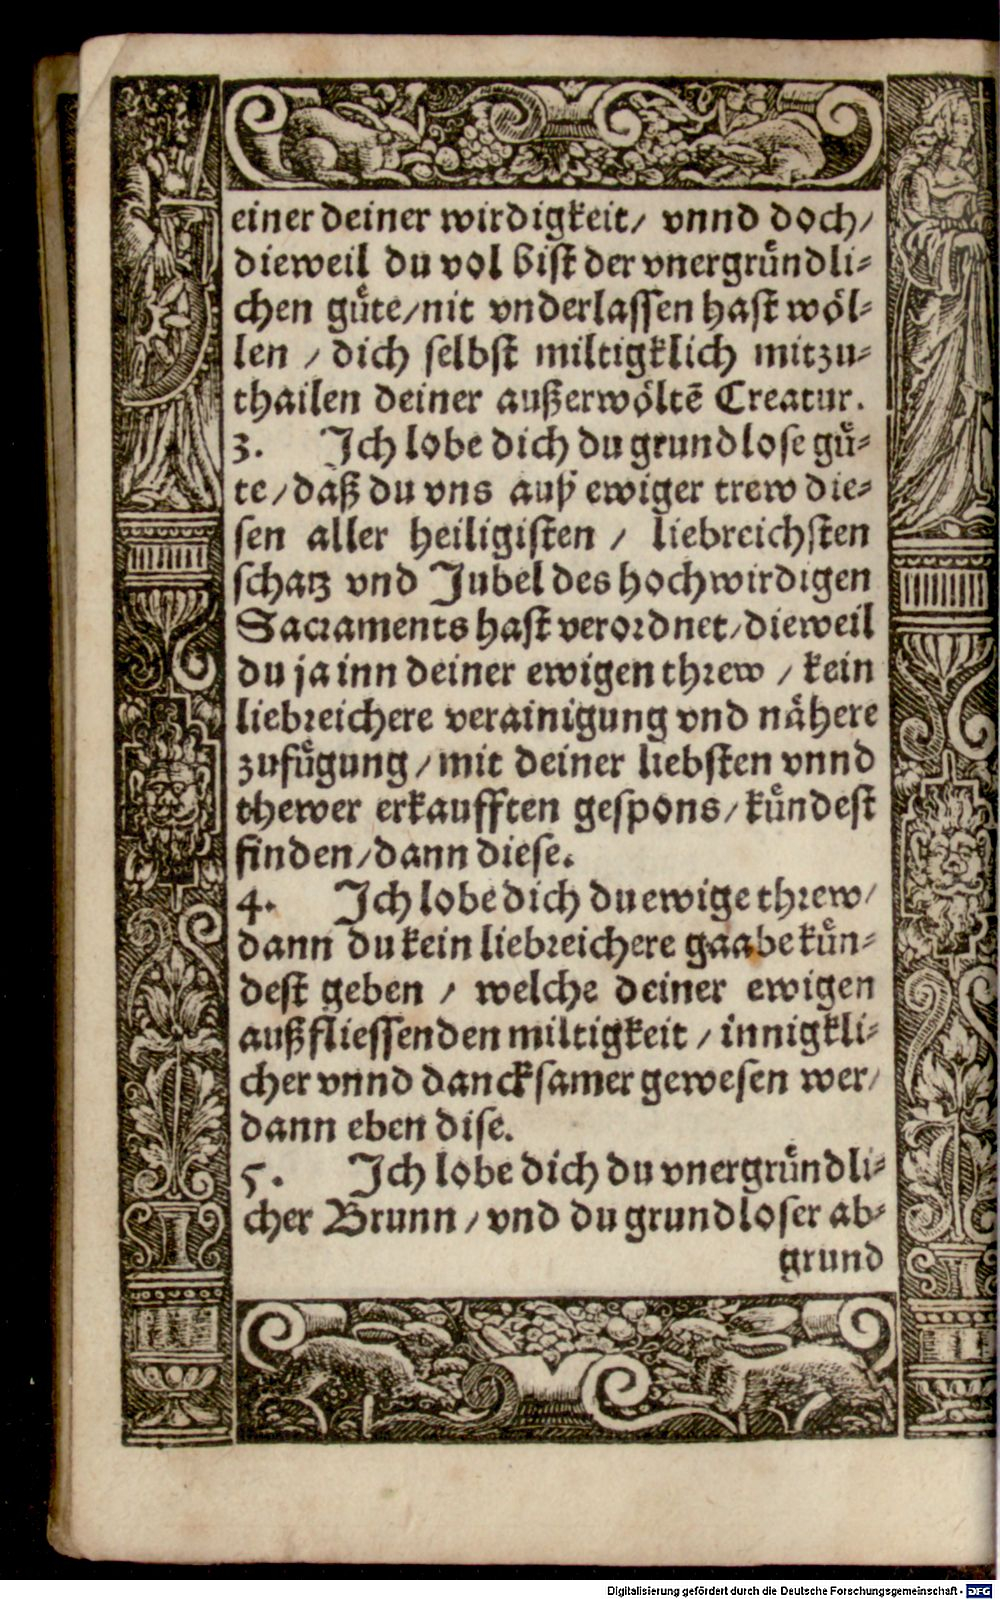 einer deiner wirdigkeit/ vnnd doch/
dieweil du vol bist der vnergruͤndli-
chen guͤte/nit vnderlassen hast woͤl-
len / dich selbst miltigklich mitzu-
thailen deiner außerwoͤltē Creatur.
3. Ich lobe dich du grundlose guͤ-
te/daß du vns auß ewiger trew die-
sen aller heiligisten / liebreichsten
schatz vnd Jubel des hochwirdigen
Sacraments hast verordnet/dieweil
du ja inn deiner ewigen threw / kein
liebreichere verainigung vnd naͤhere
zufuͤgung/mit deiner liebsten vnnd
thewer erkaufften gespons/kuͤndest
finden/dann diese.
4. Ich lobe dich du ewige threw/
dann du kein liebreichere gaabe kuͤn-
dest geben / welche deiner ewigen
außfliessenden miltigkeit / innigkli-
cher vnnd dancksamer gewesen wer/
dann eben dise.
5. Ich lobe dich du vnergruͤndli-
cher Brunn/vnd du grundloser ab-
grund
Digitalisierung gefördert durch die Deutsche Forschungsgemeinschaft - DFG